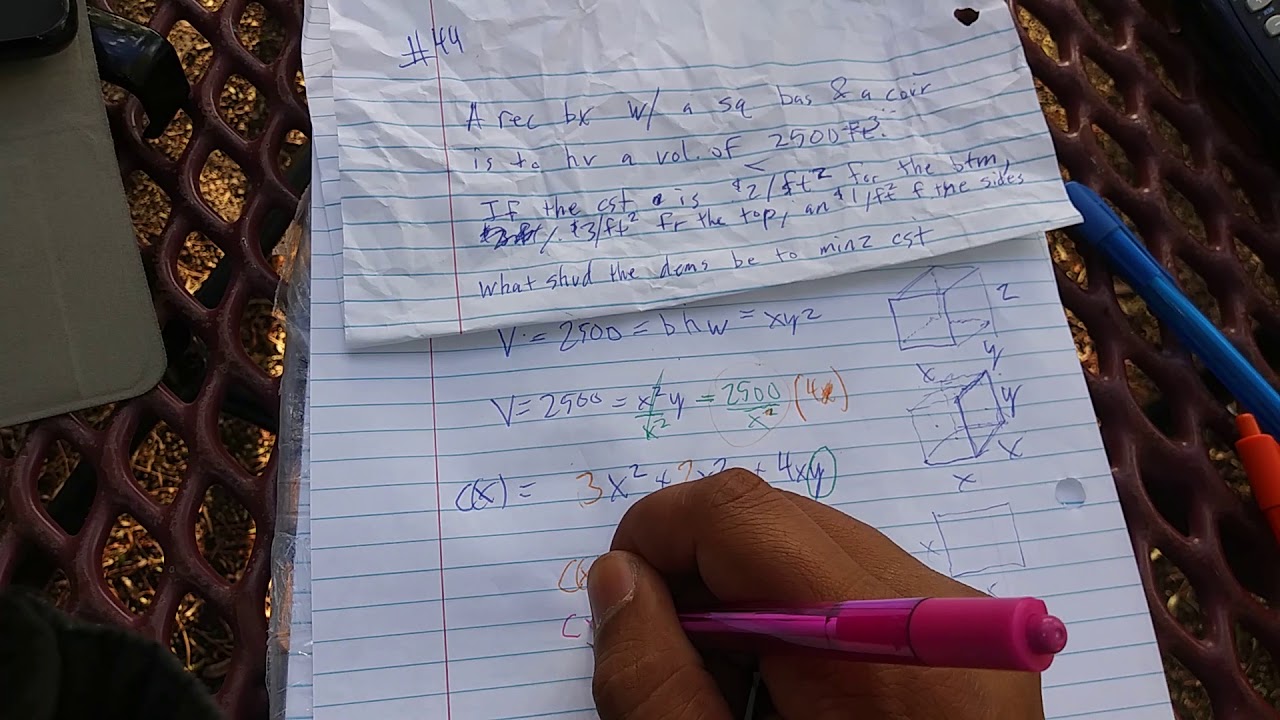 #44
A rec bx w/ a sq bas & a covr
is to hv a vol. of 2500 ft³.
If the cst is $2/ft² for the btm,
$3/ft² fr the top, an $1/ft² f the sides
what shud the dcms be to minz cst
V = 2500 = bhw = xyz
z
y
x
V = 2500 = x²y = 2500 (4x)
x² x²
y
x
x
C(x) = 3x² + 2x² + 4xy
x
C(x
C